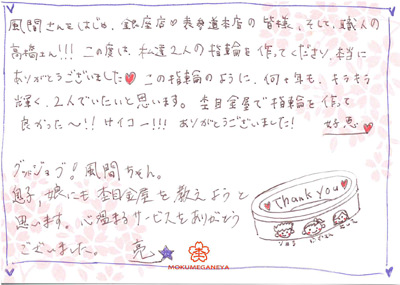 風間さんをはじめ、銀座店♡表参道本店の皆様、そして、職人の
高橋さん!!! この度は、私達2人の指輪を作ってくださり、本当に
ありがとうございました♥ この指輪のように、何十年も、キラキラ
輝く、2人でいたいと思います。杢目金屋で指輪を作って
良かった〜!! サイコー!!! ありがとうございました!
グッジョブ!風間ちゃん。
息子、娘にも杢目金屋を教えようと
思います。心温まるサービスをありがとう
ございました。 亮
Thank you
MOKUMEGANEYA